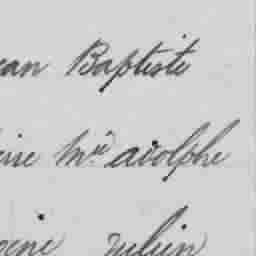 ean Baptiste
erre Mie adolphe
gène Julien